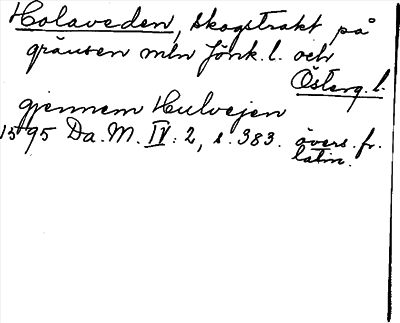 Holaveden, skogstrakt på
gränsen mln Jönk. l. och
Österg. l.
gjennem Hulvejen
1595 Da. M. IV: 2, s. 383. övers. fr.
latin.